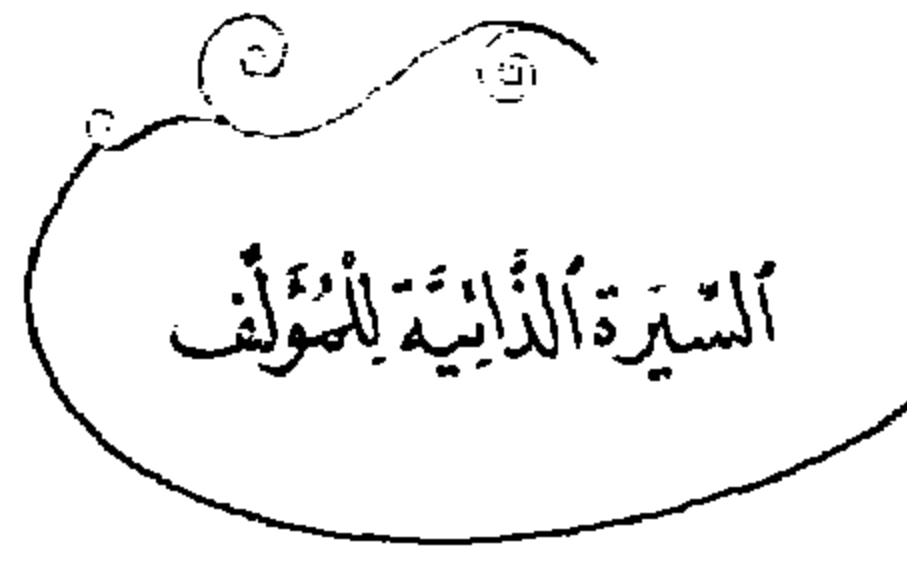 ٱلسِّيَرة ٱلذَّاتِيَّة لِلْمُؤَلِّف